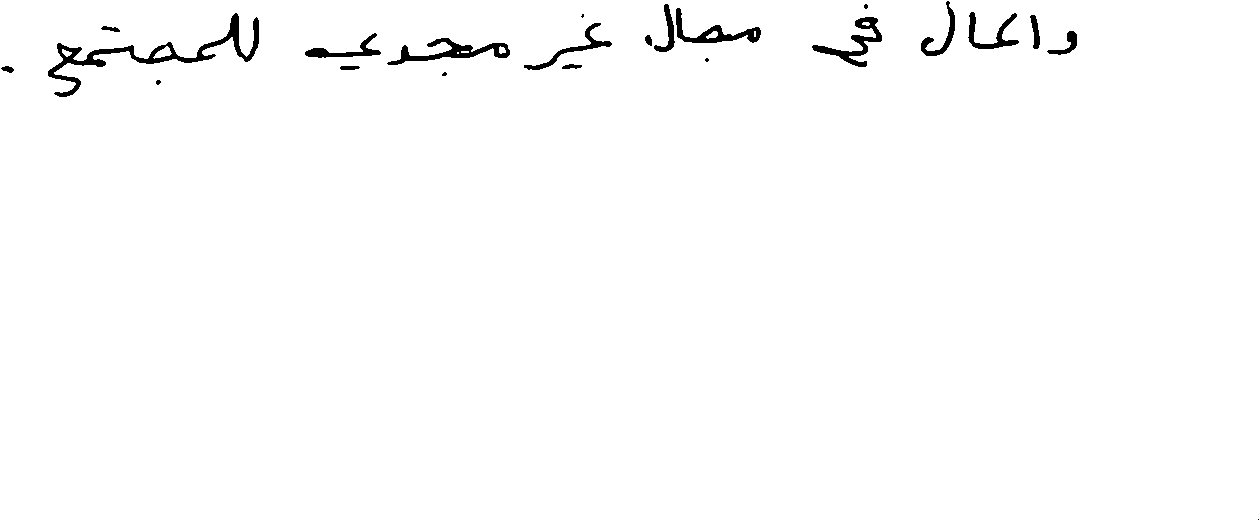 والمال في مجال غير مجدي للمجتمع .